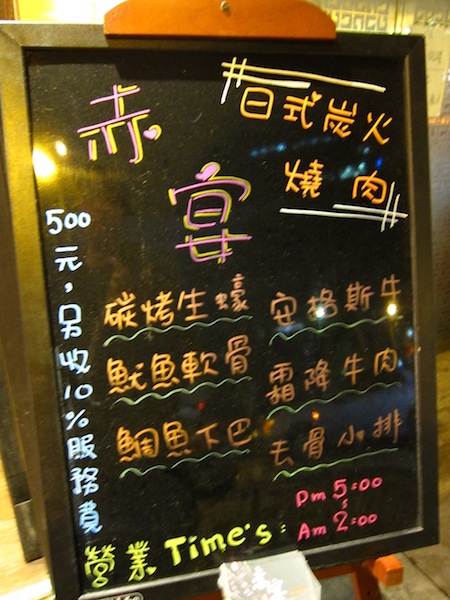 赤宴
日式炭火
燒肉
500元,另收10%服務費
碳烤生蠔
安格斯牛
魷魚軟骨
霜降牛肉
鯛魚下巴
去骨小排
營業Time's:
Pm 5:00
Am 2:00